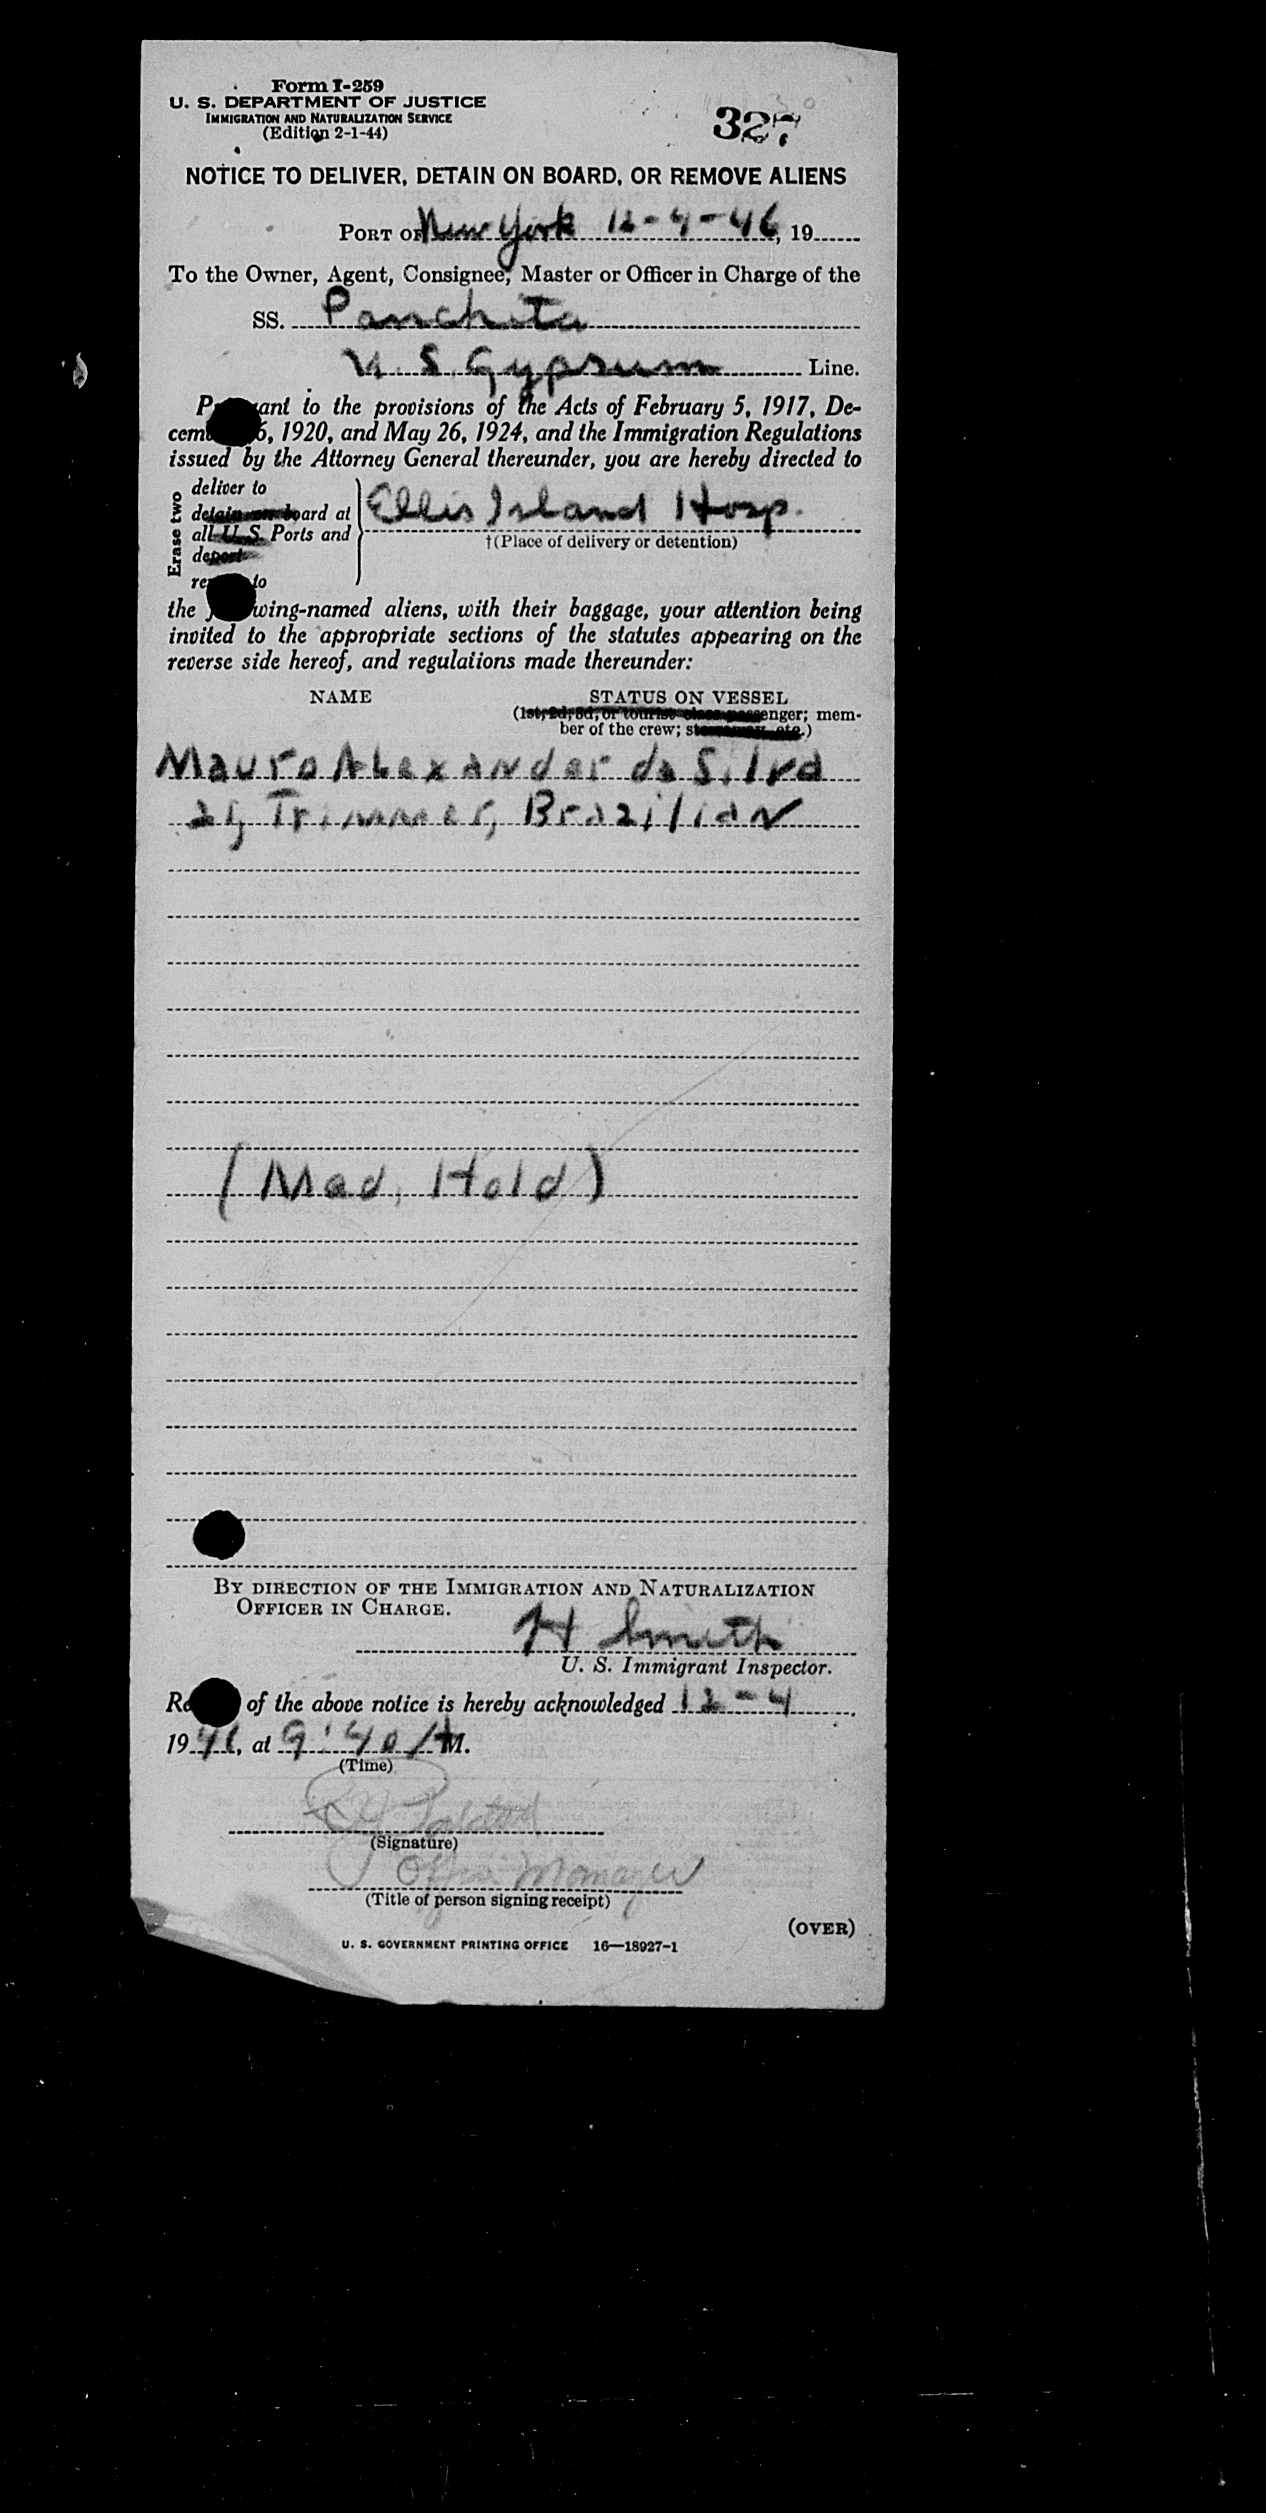 Form I-259
U. S. DEPARTMENT OF JUSTICE
IMMIGRATION AND NATURALIZATION SERVICE
(Edition 2-1-44)
327
NOTICE TO DELIVER, DETAIN ON BOARD, OR REMOVE ALIENS
PORT OF New York 12-4-46, 19
To the Owner, Agent, Consignee, Master or Officer in Charge of the
SS. Panchita
U.S. Gypsum Line.
ant to the provisions of the Acts of February 5, 1917, De-
cem 6, 1920, and May 26, 1924, and the Immigration Regulations
issued by the Attorney General thereunder, you are hereby directed to
Erase two
deliver to
detain on board at
all U. S. Ports and
deport
re to
Ellis Island Hosp.
†(Place of delivery or detention)
the wing-named aliens, with their baggage, your attention being
invited to the appropriate sections of the statutes appearing on the
reverse side hereof, and regulations made thereunder:
NAME STATUS ON VESSEL
(1st, 2d, 3d, or tourist class passenger; mem-
ber of the crew; stowaway, etc.)
Mauro Alexander da Silva
Trimmer, Brazilian
(Med. Hold)
BY DIRECTION OF THE IMMIGRATION AND NATURALIZATION
OFFICER IN CHARGE.
H Smith
U. S. Immigrant Inspector.
Re of the above notice is hereby acknowledged 12-4,
1946, at 9:40 AM.
(Time)
(Signature)
Office Manager
(Title of person signing receipt)
(OVER)
U. S. GOVERNMENT PRINTING OFFICE 16—18927-1